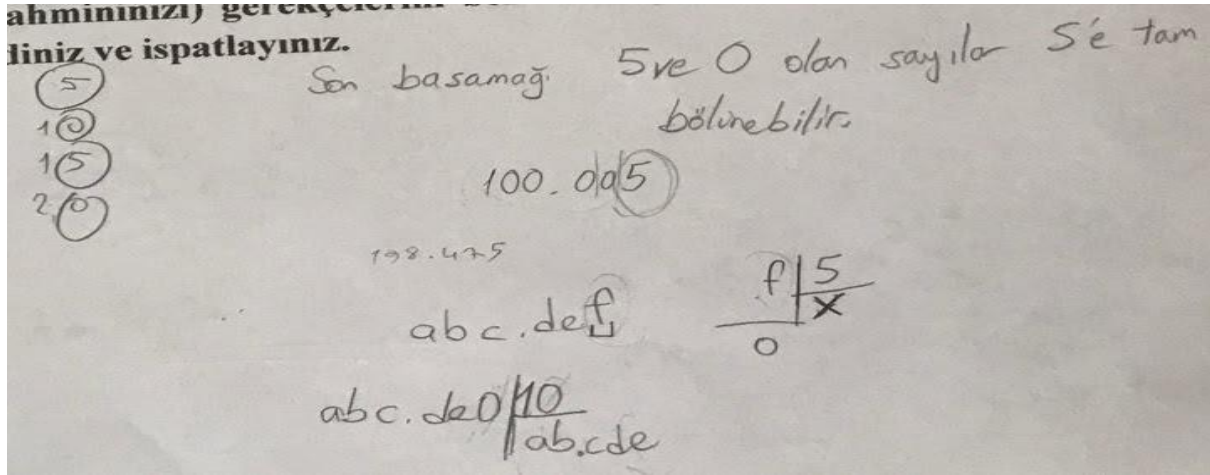 ahmininizi) gerekçelerini
diniz ve ispatlayınız.
5
10
15
20
Son basamağı 5 ve 0 olan sayılar 5'e tam
bölünebilir.
100.005
198.475
abc.def
f 5
x
0
abc.de0 10
ab.cde